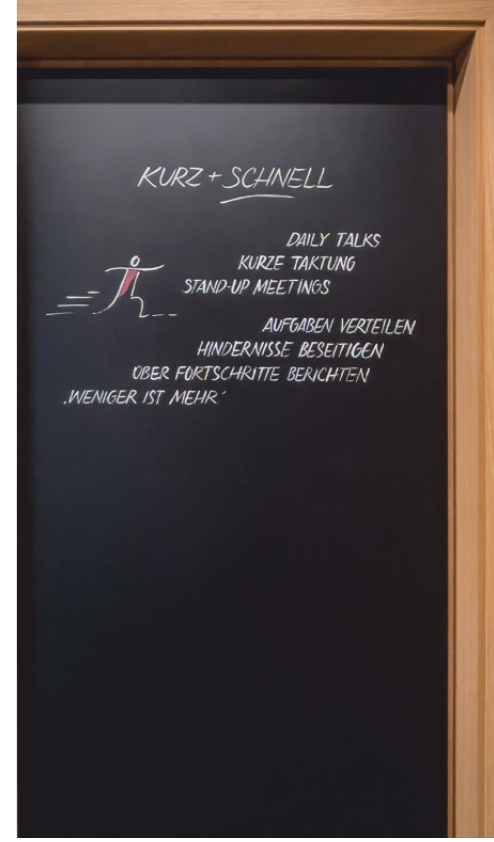 KURZ + SCHNELL
DAILY TALKS
KURZE TAKTUNG
STAND-UP MEETINGS
AUFGABEN VERTEILEN
HINDERNISSE BESEITIGEN
ÜBER FORTSCHRITTE BERICHTEN
‚WENIGER IST MEHR‘